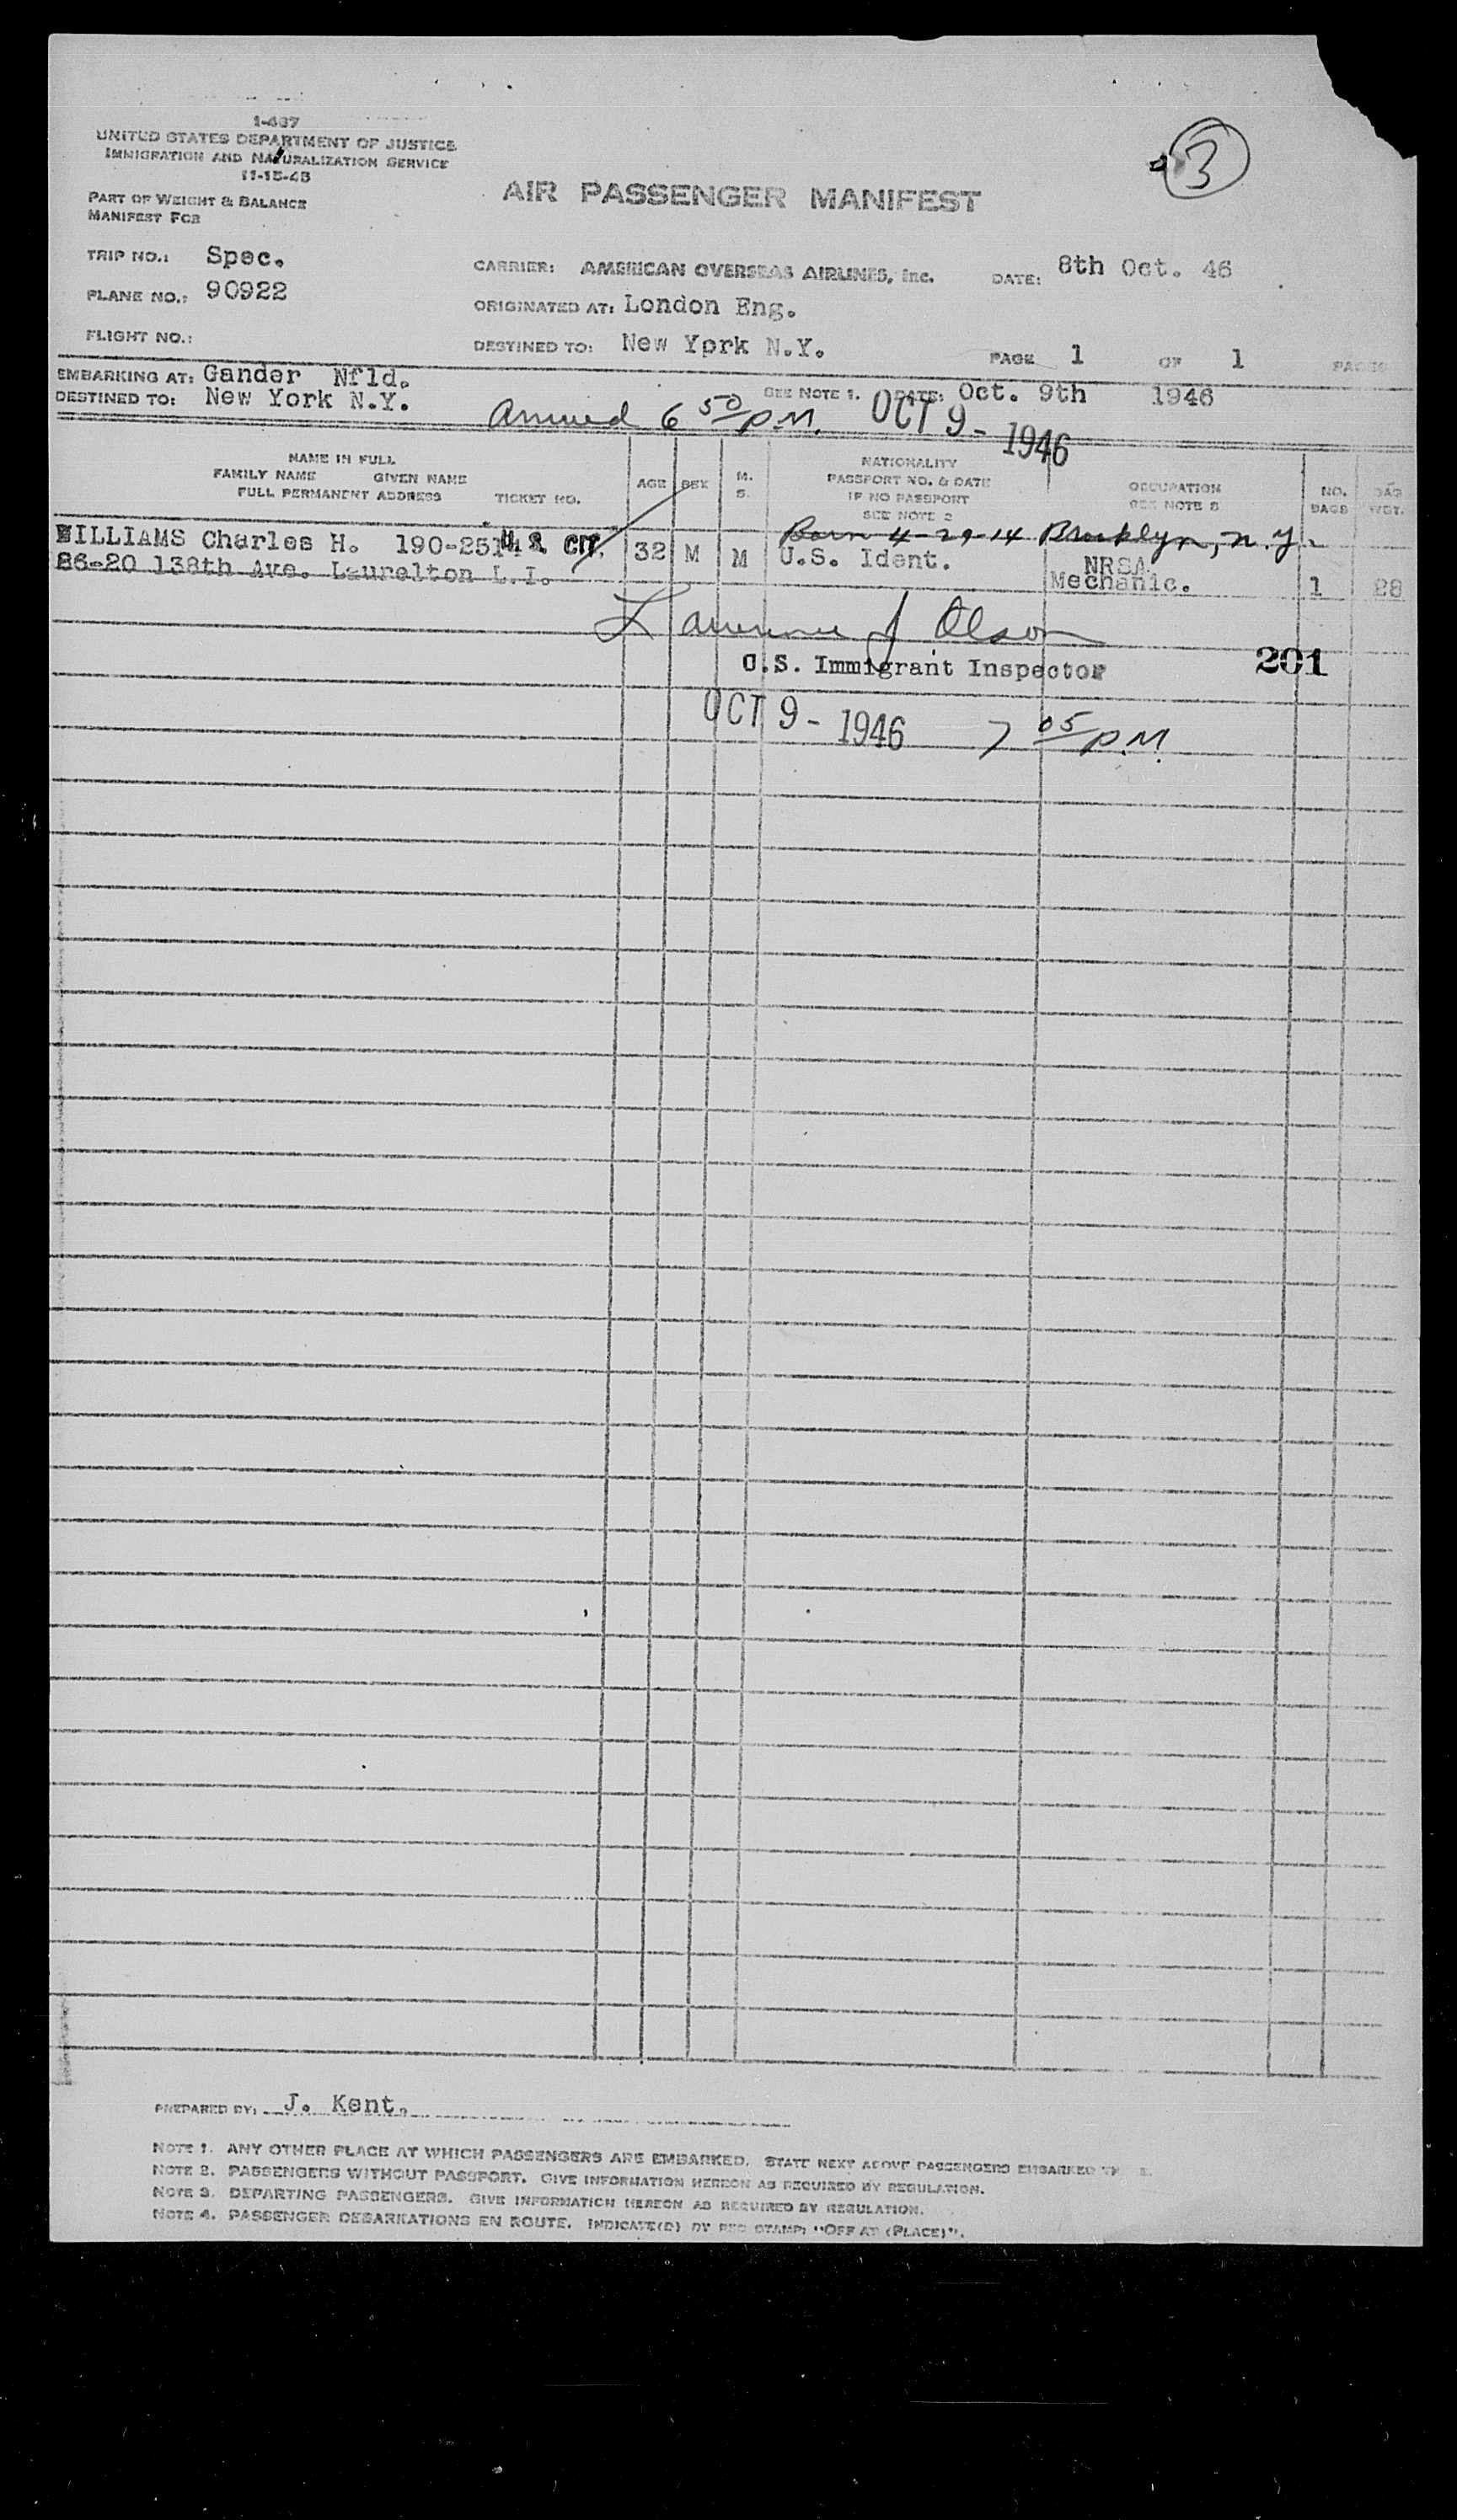 3
I-437
UNITED STATES DEPARTMENT OF JUSTICE
IMMIGRATION AND NATURALIZATION SERVICE
11-15-45
PART OF WEIGHT & BALANCE
MANIFEST FOR
AIR PASSENGER MANIFEST
TRIP NO.: Spec. CARRIER: AMERICAN OVERSEAS AIRLINES, Inc. DATE: 8th Oct. 46
PLANE NO.: 90922 ORIGINATED AT: London Eng.
FLIGHT NO.: DESTINED TO: New York N.Y. PAGE 1 OF 1 PAGES
EMBARKING AT: Gander Nfld.
DESTINED TO: New York N.Y. SEE NOTE 1. DATE: Oct. 9th 1946
Arrived 6 50 P.M. OCT 9 - 1946
NAME IN FULL
FAMILY NAME GIVEN NAME
FULL PERMANENT ADDRESS TICKET NO. AGE SEX M. S. NATIONALITY PASSPORT NO. & DATE IF NO PASSPORT SEE NOTE 2 OCCUPATION SEE NOTE 3 NO. BAGS BAG WGT.
Born 4-29-14 Brooklyn, N.Y.
WILLIAMS Charles H. 190-2514 U.S. CIT. 32 M M U.S. Ident. NRSA
26-20 138th Ave. Laurelton L.I. Mechanic. 1 28
Lawrence J Olson
U.S. Immigrant Inspector 201
OCT 9 - 1946 7 05 P.M.
PREPARED BY: J. Kent.
NOTE 1. ANY OTHER PLACE AT WHICH PASSENGERS ARE EMBARKED. STATE NEXT ABOVE PASSENGERS EMBARKED
NOTE 2. PASSENGERS WITHOUT PASSPORT. GIVE INFORMATION HEREON AS REQUIRED BY REGULATION.
NOTE 3. DEPARTING PASSENGERS. GIVE INFORMATION HEREON AS REQUIRED BY REGULATION.
NOTE 4. PASSENGER DEBARKATIONS EN ROUTE. INDICATE(D) BY RED STAMP: "OFF AT (PLACE)".